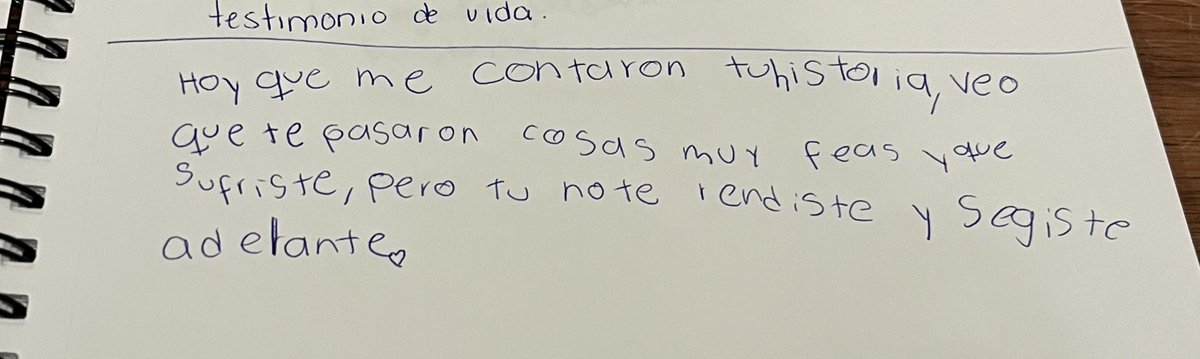 testimonio de vida.
Hoy que me contaron tuhistoria, veo
que te pasaron cosas muy feas y que
sufriste, pero tu no te rendiste y segiste
adelante